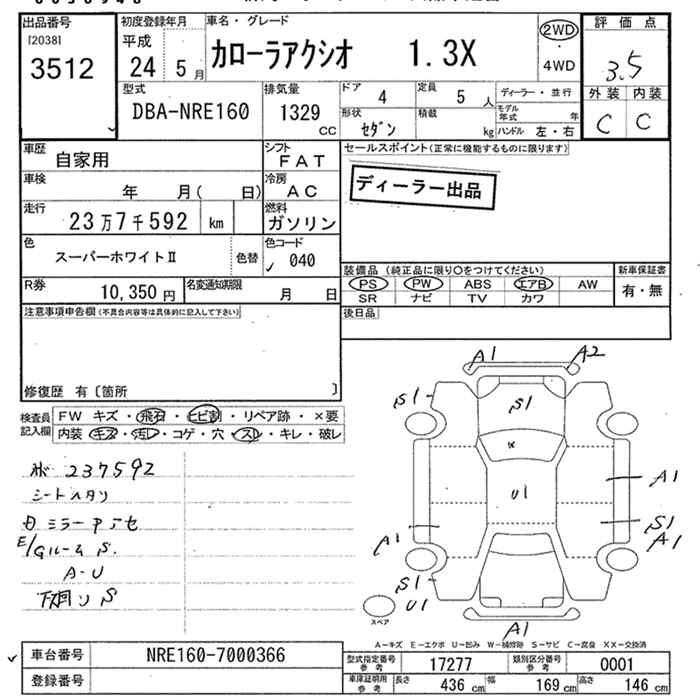 出品番号
[2038]
3512
初度登録年月
平成
24 5月
車名・グレード
カローラアクシオ 1.3X
2WD
・
4WD
評価点
3.5
外装 内装
C C
型式
DBA-NRE160
排気量
1329
CC
ドア 4
定員 5 人
ディーラー・並行
形状 セダン
積載 kg
モデル年式 年
ハンドル 左・右
車歴 自家用
シフト FAT
車検 年 月( 日)
冷房 AC
走行 23万7千592 km
燃料 ガソリン
色 スーパーホワイトⅡ
色替
色コード
✓ 040
R券 10,350円
名変通知期限 月 日
セールスポイント(正常に機能するものに限ります)
ディーラー出品
装備品(純正品に限り○をつけてください)
PS PW ABS エアB AW
SR ナビ TV カワ
新車保証書
有・無
後日品
注意事項申告欄(不具合内容等は具体的に記入して下さい)
修復歴 有〔箇所 〕
検査員記入欄
FW キズ・飛石・ヒビ割・リペア跡・×要
内装 キズ・汚レ・コゲ・穴・スレ・キレ・破レ
237592
シートヘタリ
カミラーアセ
E/Gルーム S.
A-U
下廻リ S
A1 A2
S1
S1
×
U1
A1
S1
A1
A1
S1
U1
A1
スペア
A-キズ E-エクボ U-凹み W-補修跡 S-サビ C-腐食 XX-交換済
車台番号 NRE160-7000366
登録番号
型式指定番号参考 17277
類別区分番号参考 0001
車庫証明用参考 長さ 436 cm 幅 169 cm 高さ 146 cm